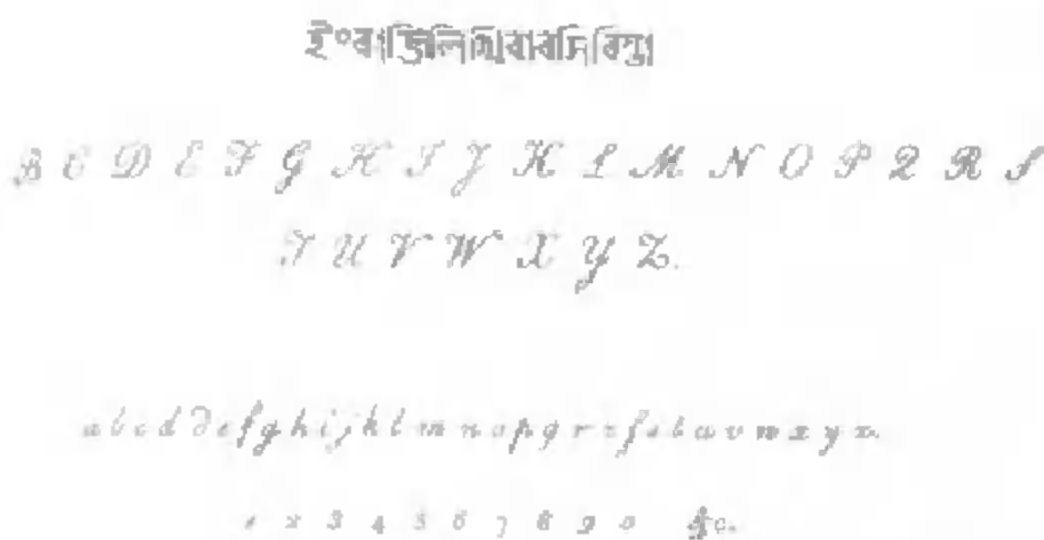 B C D E F G H I J K L M N O P Q R S
T U V W X Y Z.
a b c d ∂ e f g h i j k l m n o p q r s ſ s t u v w x y z.
1 2 3 4 5 6 7 8 9 0 &c.